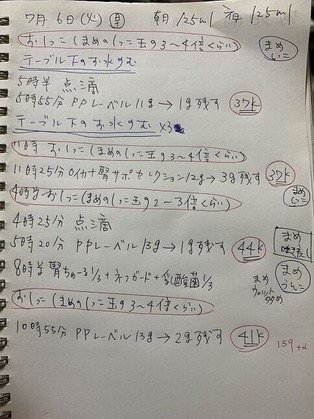 7月6日(火) 朝125ml 夜125ml
おしっこ(まめのしっこ玉の3〜4倍くらい)
まめ しっこ
テーブル下のお水のむ
5時半 点滴
5時55分 PPレーベル11g→1g残す 37k
テーブル下のお水のむ×3
11時 おしっこ(まめのしっこ玉の3〜4倍くらい)
11時25分 腎サポセレクション12g→3g残す 37k
4時半おしっこ(まめのしっこ玉の2〜3倍くらい)
まめ しっこ
4時25分 点滴
5時20分 PPレーベル13g→1g残す 44k
まめ
8時半 腎ちの 1/3+ネフガード+乳酸菌1/3
まめ うんこ
まめ
おしっこ(まめのしっこ玉の3〜4倍くらい)
10時55分 PPレーベル13g→2g残す 41k
159+α